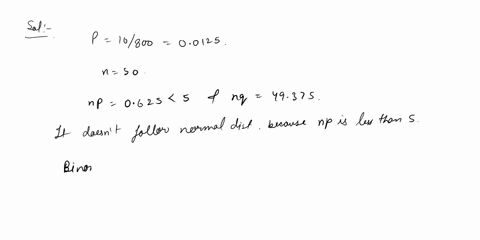 Sol:-
P = 10/800 = 0.0125.
n = 50.
np = 0.625 < 5 & nq = 49.375.
It doesn't follow normal dist. because np is less than 5.
Binom